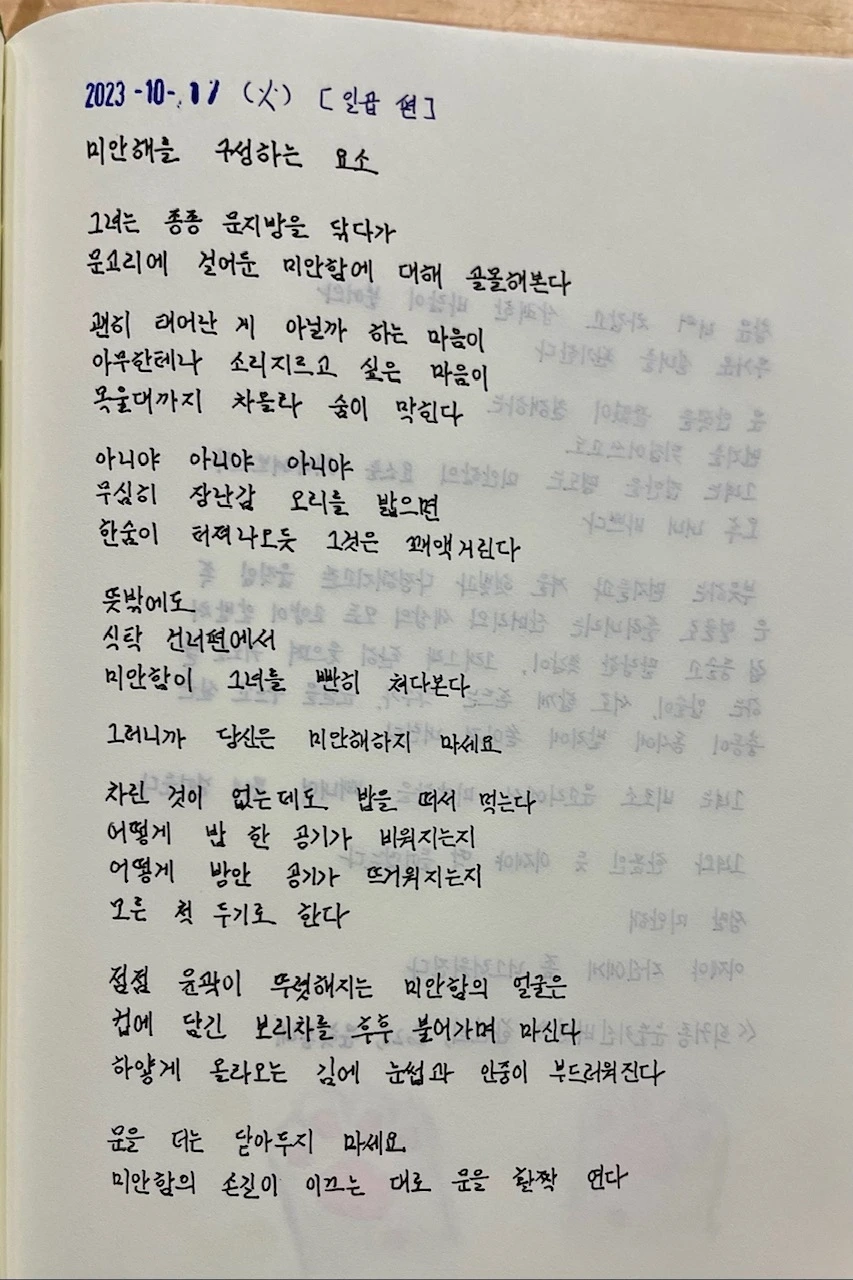 2023-10-17 (火) [일곱 편]
미안해를 구성하는 요소
그녀는 종종 문지방을 닦다가
문고리에 걸어둔 미안함에 대해 골몰해본다
괜히 태어난 게 아닐까 하는 마음이
아무한테나 소리지르고 싶은 마음이
목울대까지 차올라 숨이 막힌다
아니야 아니야 아니야
무심히 장난감 오리를 밟으면
한숨이 터져나오듯 그것은 꽤액거린다
뜻밖에도
식탁 건너편에서
미안함이 그녀를 빤히 쳐다본다
그러니까 당신은 미안해하지 마세요
차린 것이 없는데도 밥을 떠서 먹는다
어떻게 밥 한 공기가 비워지는지
어떻게 방안 공기가 뜨거워지는지
모른 척 두기로 한다
점점 윤곽이 뚜렷해지는 미안함의 얼굴은
컵에 담긴 보리차를 후후 불어가며 마신다
하얗게 올라오는 김에 눈썹과 인중이 부드러워진다
문을 더는 닫아두지 마세요
미안함의 손길이 이끄는 대로 문을 활짝 연다